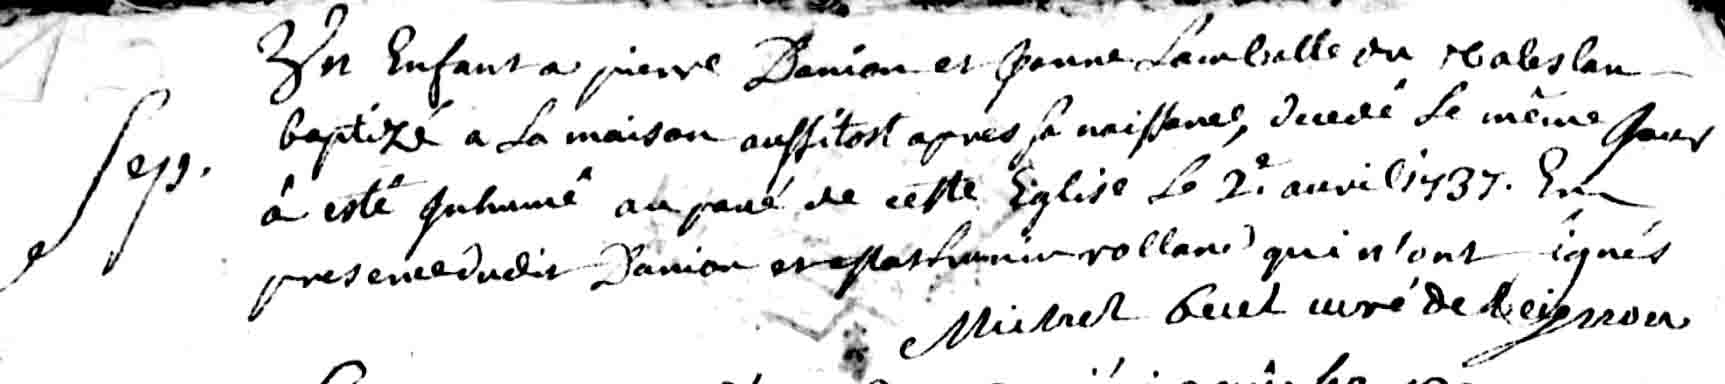 Un Enfant a pierre Danion et Janne Lamballe du
baptizé a La maison aussitost apres sa naissance, decedé Le même Jour
Sep.
à esté Inhumé au pavé de cette Eglise Le 2e. avril 1737. En
presence dudit Danion et rolland qui n'ont signés
Michel curé de